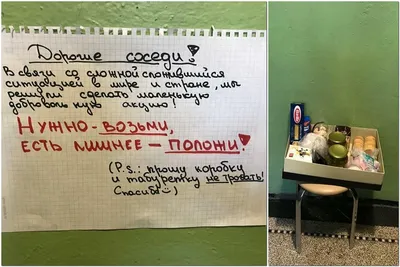 Дорогие соседи!
В связи со сложной сложившийся
ситуацией в мире и стране, мы
решили сделать маленькую
добровольную акцию!
Нужно - возьми,
есть лишнее - положи!
(P.s.: прошу коробку
и табуретку не трогать!
Спасибо☺)